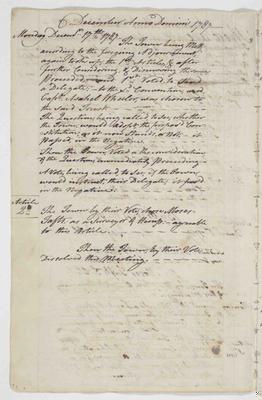 6 December Anno Domini 1787
Monday Decemr. 17th. 1787
The Town being Mett
according to the foregoing Adjournment
again took up the 1st. Article, & after
further Considering & Discussing thereon
Proceeded, 1st. Voted to Send
a Delegate, to the Sd. Convention, and
Capt. Asahel Wheeler, was chosen to
the said Trust
The Question being called to See, whether
the Town would adopt the proposed Con-
stitution as it now Stands, or Not. it
passed in the Negative
Then the Town, Voted a Reconsideration
of the Question immediately Preceding
A Vote, being called to See, if the Town,
would instruct their Delegate, it passed
in the Negative
Article
2d. The Town by their Vote, chose Moses
Taft, as a Surveyor of Hemp agreeable
to this Article
Then the Town, by their Vote
Dissolved this Meeting